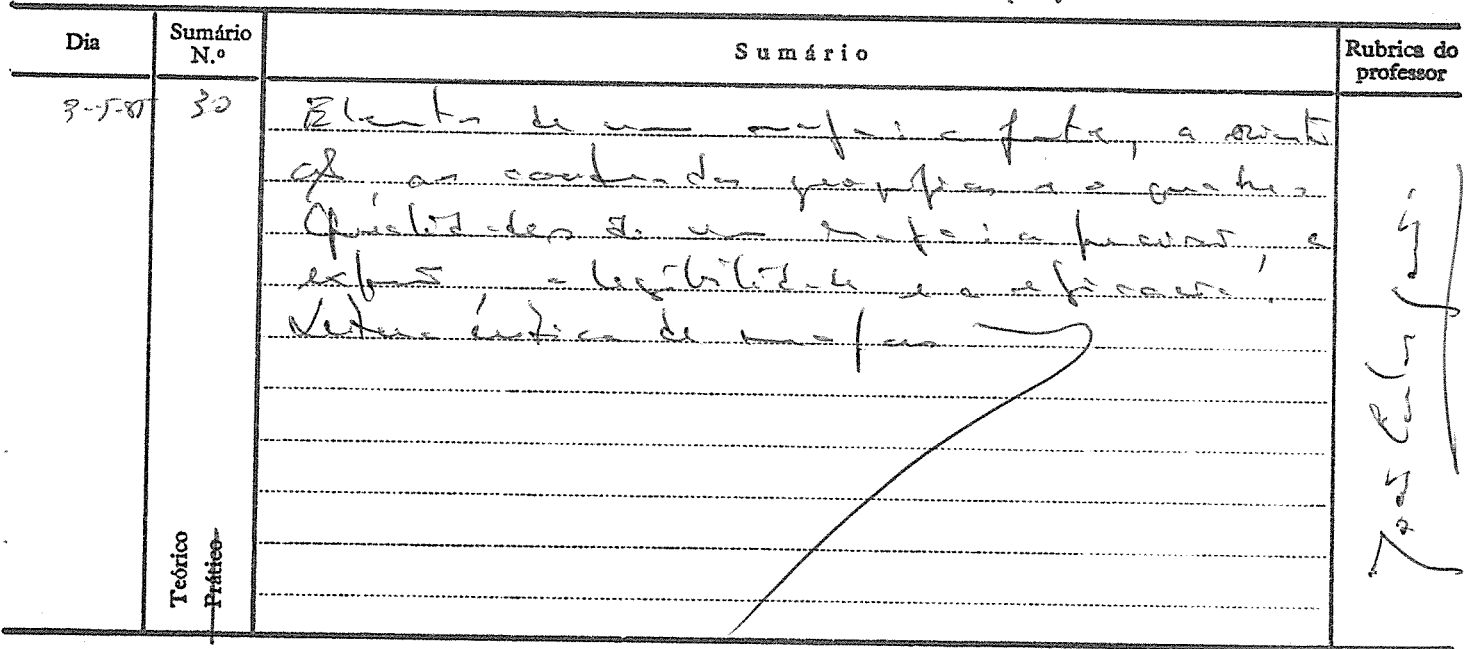 Dia
Sumário N.º
Sumário
Rubrica do professor
30
Elementos de um mapa: a fonte, a orienta
ção, as coordenadas geográficas e a
Qualidades de um mapa: a precisão, a
a legibilidade e a eficácia.
Leitura crítica de mapas
Teórico
Prático
José